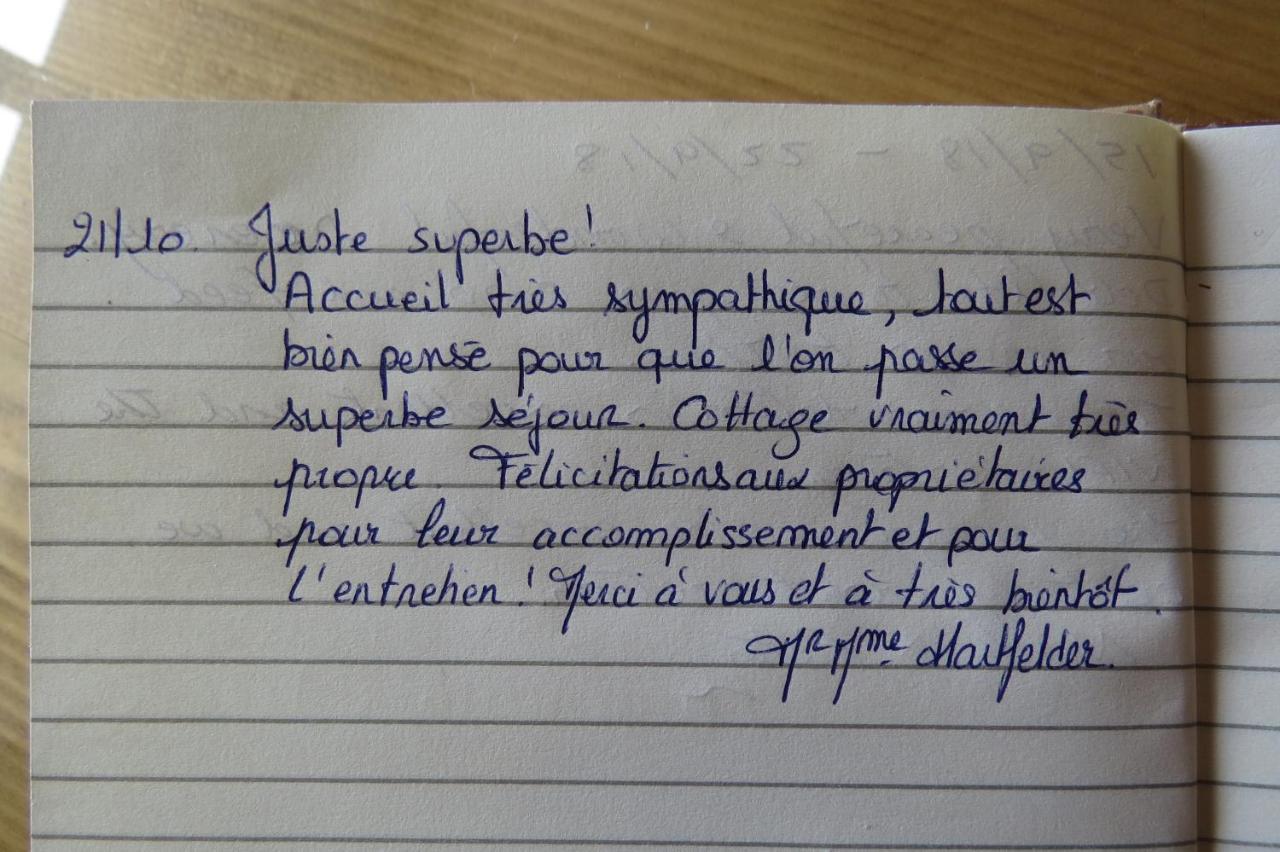 21/10. Juste superbe!
Accueil très sympathique, tout est
bien pensé pour que l'on passe un
superbe séjour. Cottage vraiment très
propre. Félicitations aux propriétaires
pour leur accomplissement et pour
l'entretien! Merci à vous et à très bientôt.
Mr Mme